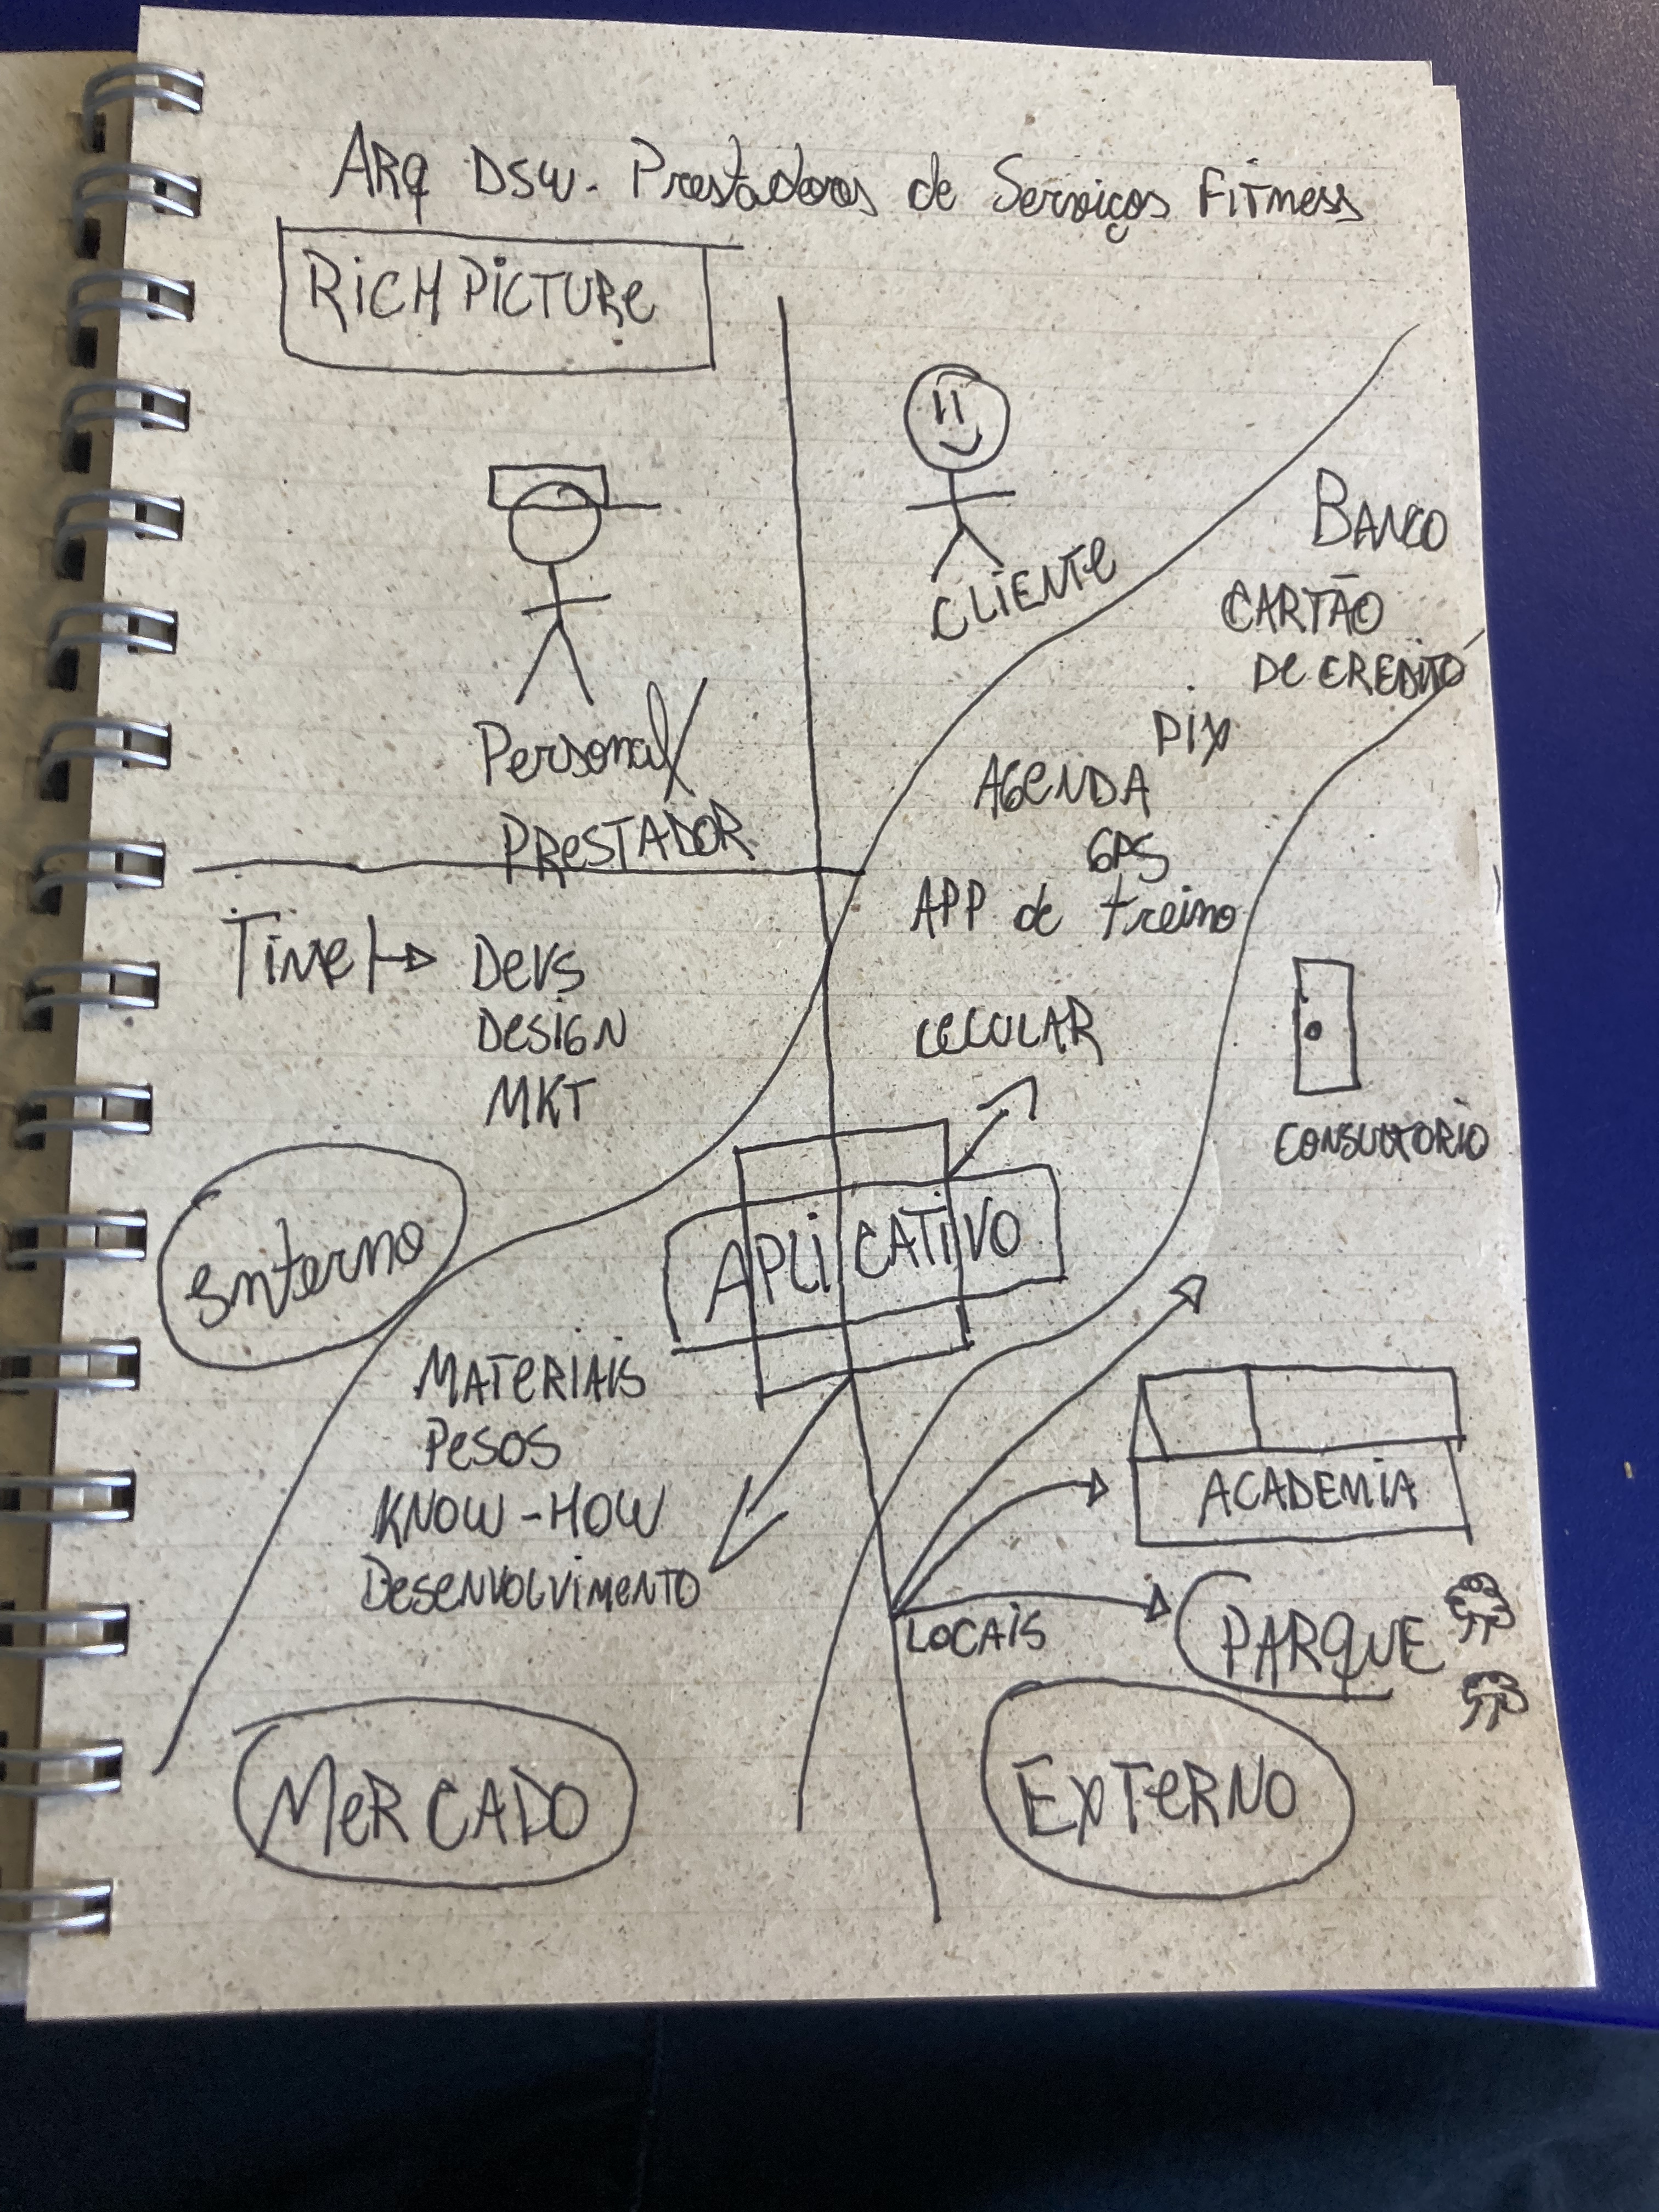 ARQ DSW. Prestadores de Serviços Fitness
RICH PICTURE
CLIENTE
Personal/
PRESTADOR
BANCO
CARTÃO
DE CREDITO
PIX
AGENDA
GPS
APP de treino
CELULAR
Time → Devs
Design
MKT
CONSULTORIO
Interno
APLICATIVO
MATERIAIS
PESOS
KNOW-HOW
Desenvolvimento
ACADEMIA
LOCAIS
PARQUE
MERCADO
EXTERNO